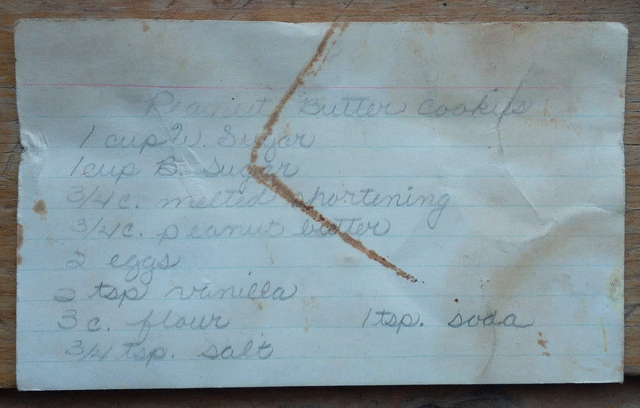 Peanut Butter Cookies
1 cup W. Sugar
1 cup B. Sugar
3/4 c. melted shortening
3/4 c. peanut butter
2 eggs
2 tsp vanilla
3 c. flour 1 tsp. soda
3/4 tsp. salt